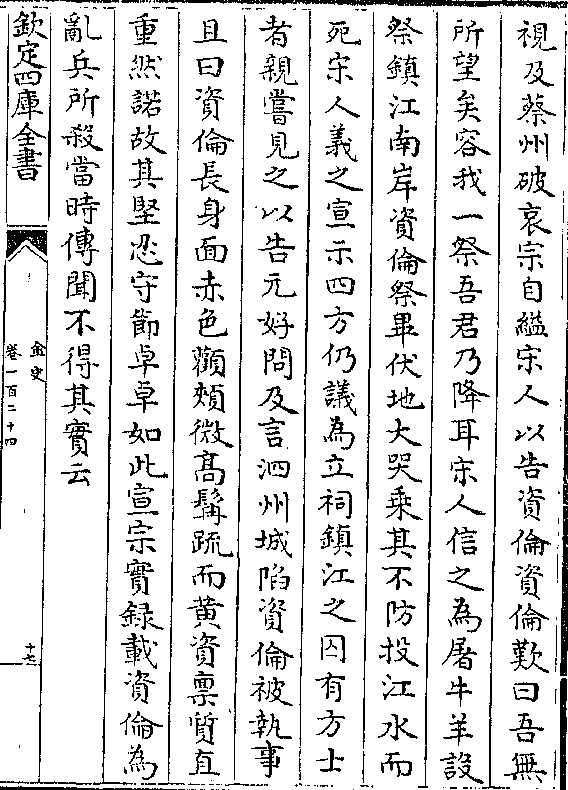 視及蔡州破哀宗自縊宋人以告資倫資倫歎曰吾無
所望矣容我一祭吾君乃降耳宋人信之為屠牛羊設
祭鎮江南岸資倫祭畢伏地大哭乗其不防投江水而
死宋人義之宣示四方仍議為立祠鎮江之囚有方士
者親嘗見之以告元好問及言泗州城陷資倫被執事
且曰資倫長身面赤色顴頰微髙髯疏而黄資禀質直
重然諾故其堅忍守節卓卓如此宣宗實録載資倫為
亂兵所殺當時傳聞不得其實云
欽定四庫全書
金史
卷一百二十四
十七